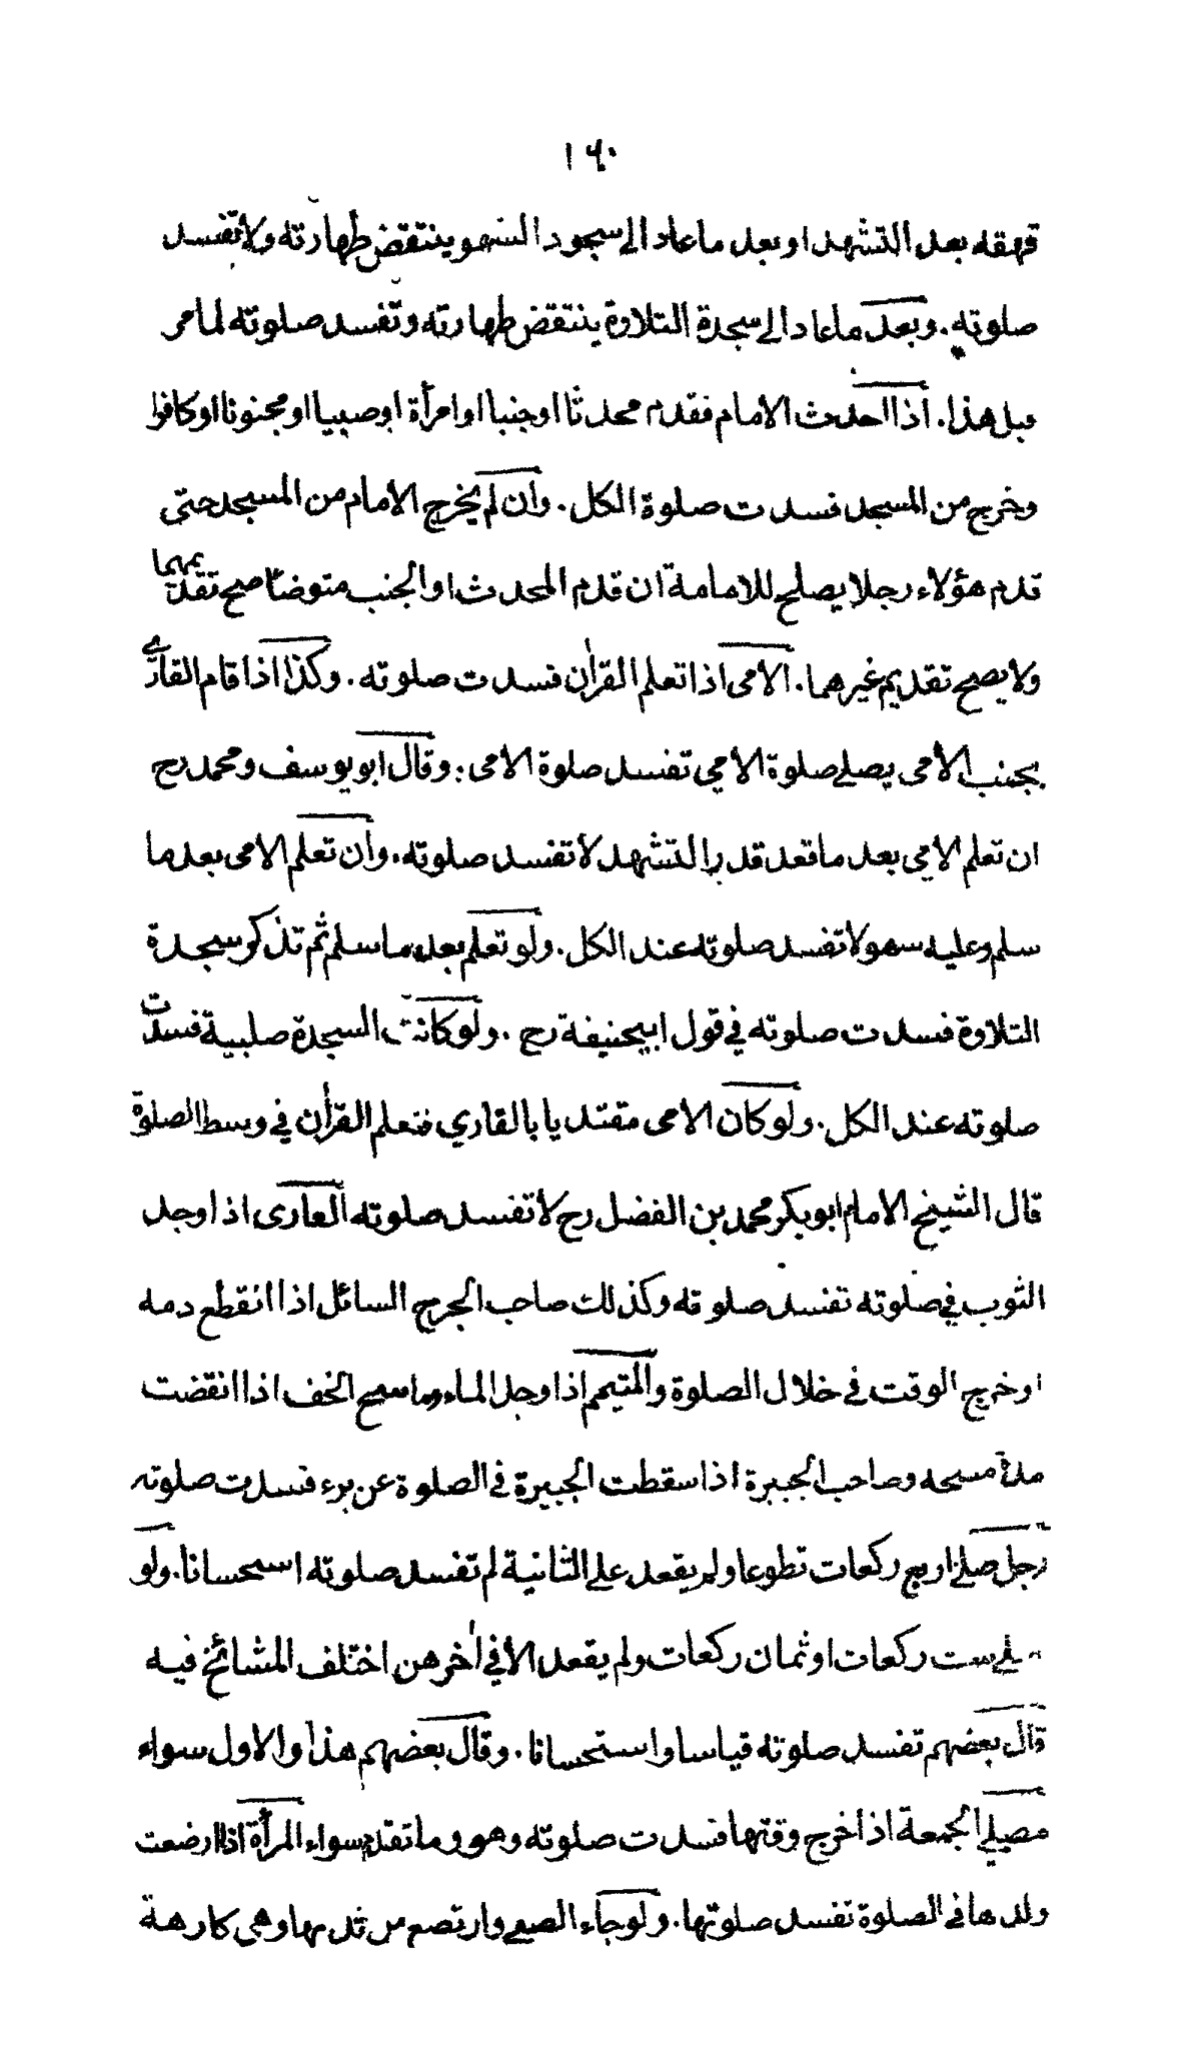 ١٦٠
قهقه بعد التشهد او بعد ما عاد الى سجود السهو ينتقض طهارته ولا تفسد
صلوته. وبعد ما عاد الى سجدة التلاوة ينتقض طهارته وتفسد صلوته لما مر
قبل هذا. اذا احدث الامام فقدم محدثا او جنبا او امرأة او صبيا او مجنونا او كافرا
وخرج من المسجد فسدت صلوة الكل. وان لم يخرج الامام من المسجد حتى
قدم هؤلاء رجلا يصلح للامامة ان قدم المحدث او الجنب متوضئا صح تقديمهما
ولا يصح تقديم غيرهما. الامى اذا تعلم القرأن فسدت صلوته. وكذا اذا قام القارئ
بجنب الأمى يصلى صلوة الامي تفسد صلوة الامى. وقال ابو يوسف ومحمد رح
ان تعلم الامي بعد ما قعد قدر التشهد لا تفسد صلوته. وان تعلم الامى بعد ما
سلم وعليه سهو لا تفسد صلوته عند الكل. ولو تعلم بعد ما سلم ثم تذكر سجدة
التلاوة فسدت صلوته في قول ابيحنيفة رح. ولو كانت السجدة صلبية فسدت
صلوته عند الكل. ولو كان الامى مقتديا بالقاري فتعلم القرأن في وسط الصلوة
قال الشيخ الامام ابو بكر محمد بن الفضل رح لا تفسد صلوته العارى اذا وجد
الثوب في صلوته تفسد صلوته وكذلك صاحب الجرح السائل اذا انقطع دمه
او خرج الوقت في خلال الصلوة والمتيمم اذا وجد الماء وماسح الخف اذا انقضت
مدة مسحه وصاحب الجبيرة اذا سقطت الجبيرة في الصلوة عن برء فسدت صلوته
رجل صلى اربع ركعات تطوعا ولم يقعد على الثانية لم تفسد صلوته استحسانا. ولو
صلى ست ركعات او ثمان ركعات ولم يقعد الا في أخرهن اختلف المشائخ فيه
قال بعضهم تفسد صلوته قياسا واستحسانا. وقال بعضهم هذا والاول سواء
مصلي الجمعة اذا خرج وقتها فسدت صلوته وهو وما تقدم سواء المرأة اذا ارضعت
ولدها في الصلوة تفسد صلوتها. ولو جاء الصبي وارتضع من ثديها وهى كارهة